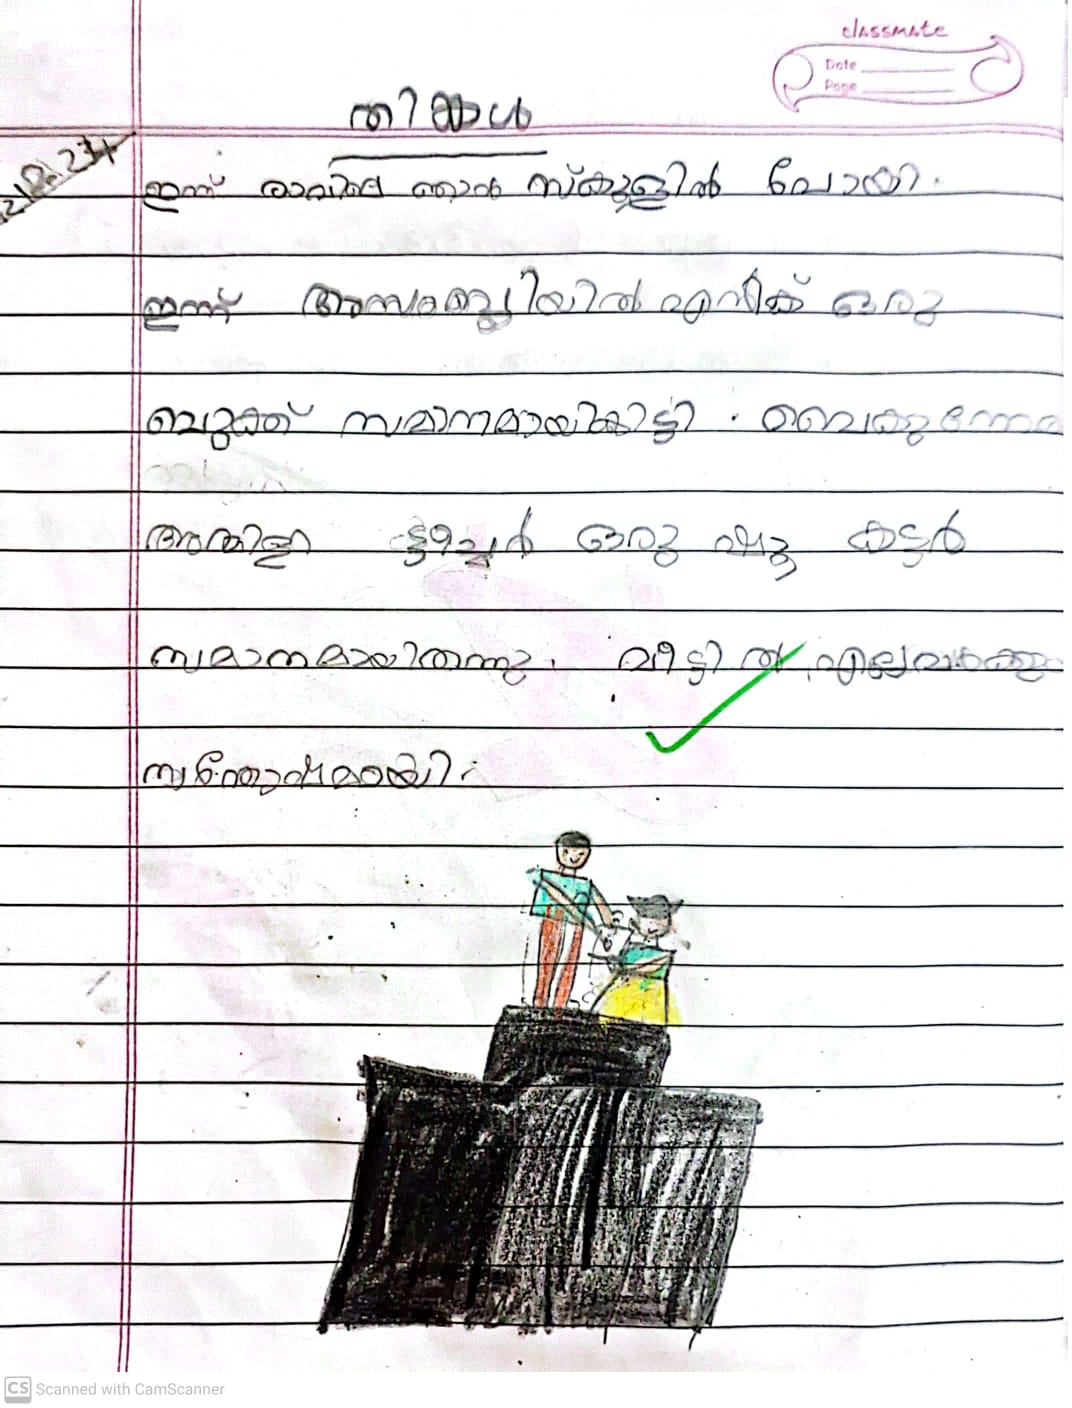 classmate
Date
Page
തിങ്കൾ
ഇന്ന് രാവിലെ ഞാൻ സ്കൂളിൽ പോയി.
ഇന്ന് അസംബ്ലിയിൽ എനിക്ക് ഒരു
ബുക്ക് സമാനമായികിട്ടി. വൈകുന്നേര
ടീച്ചർ ഒരു കട്ടർ
സമാനമായിതന്നു. വീട്ടിൽ എല്ലവർക്കും
സന്തോഷമായി.
CS Scanned with CamScanner